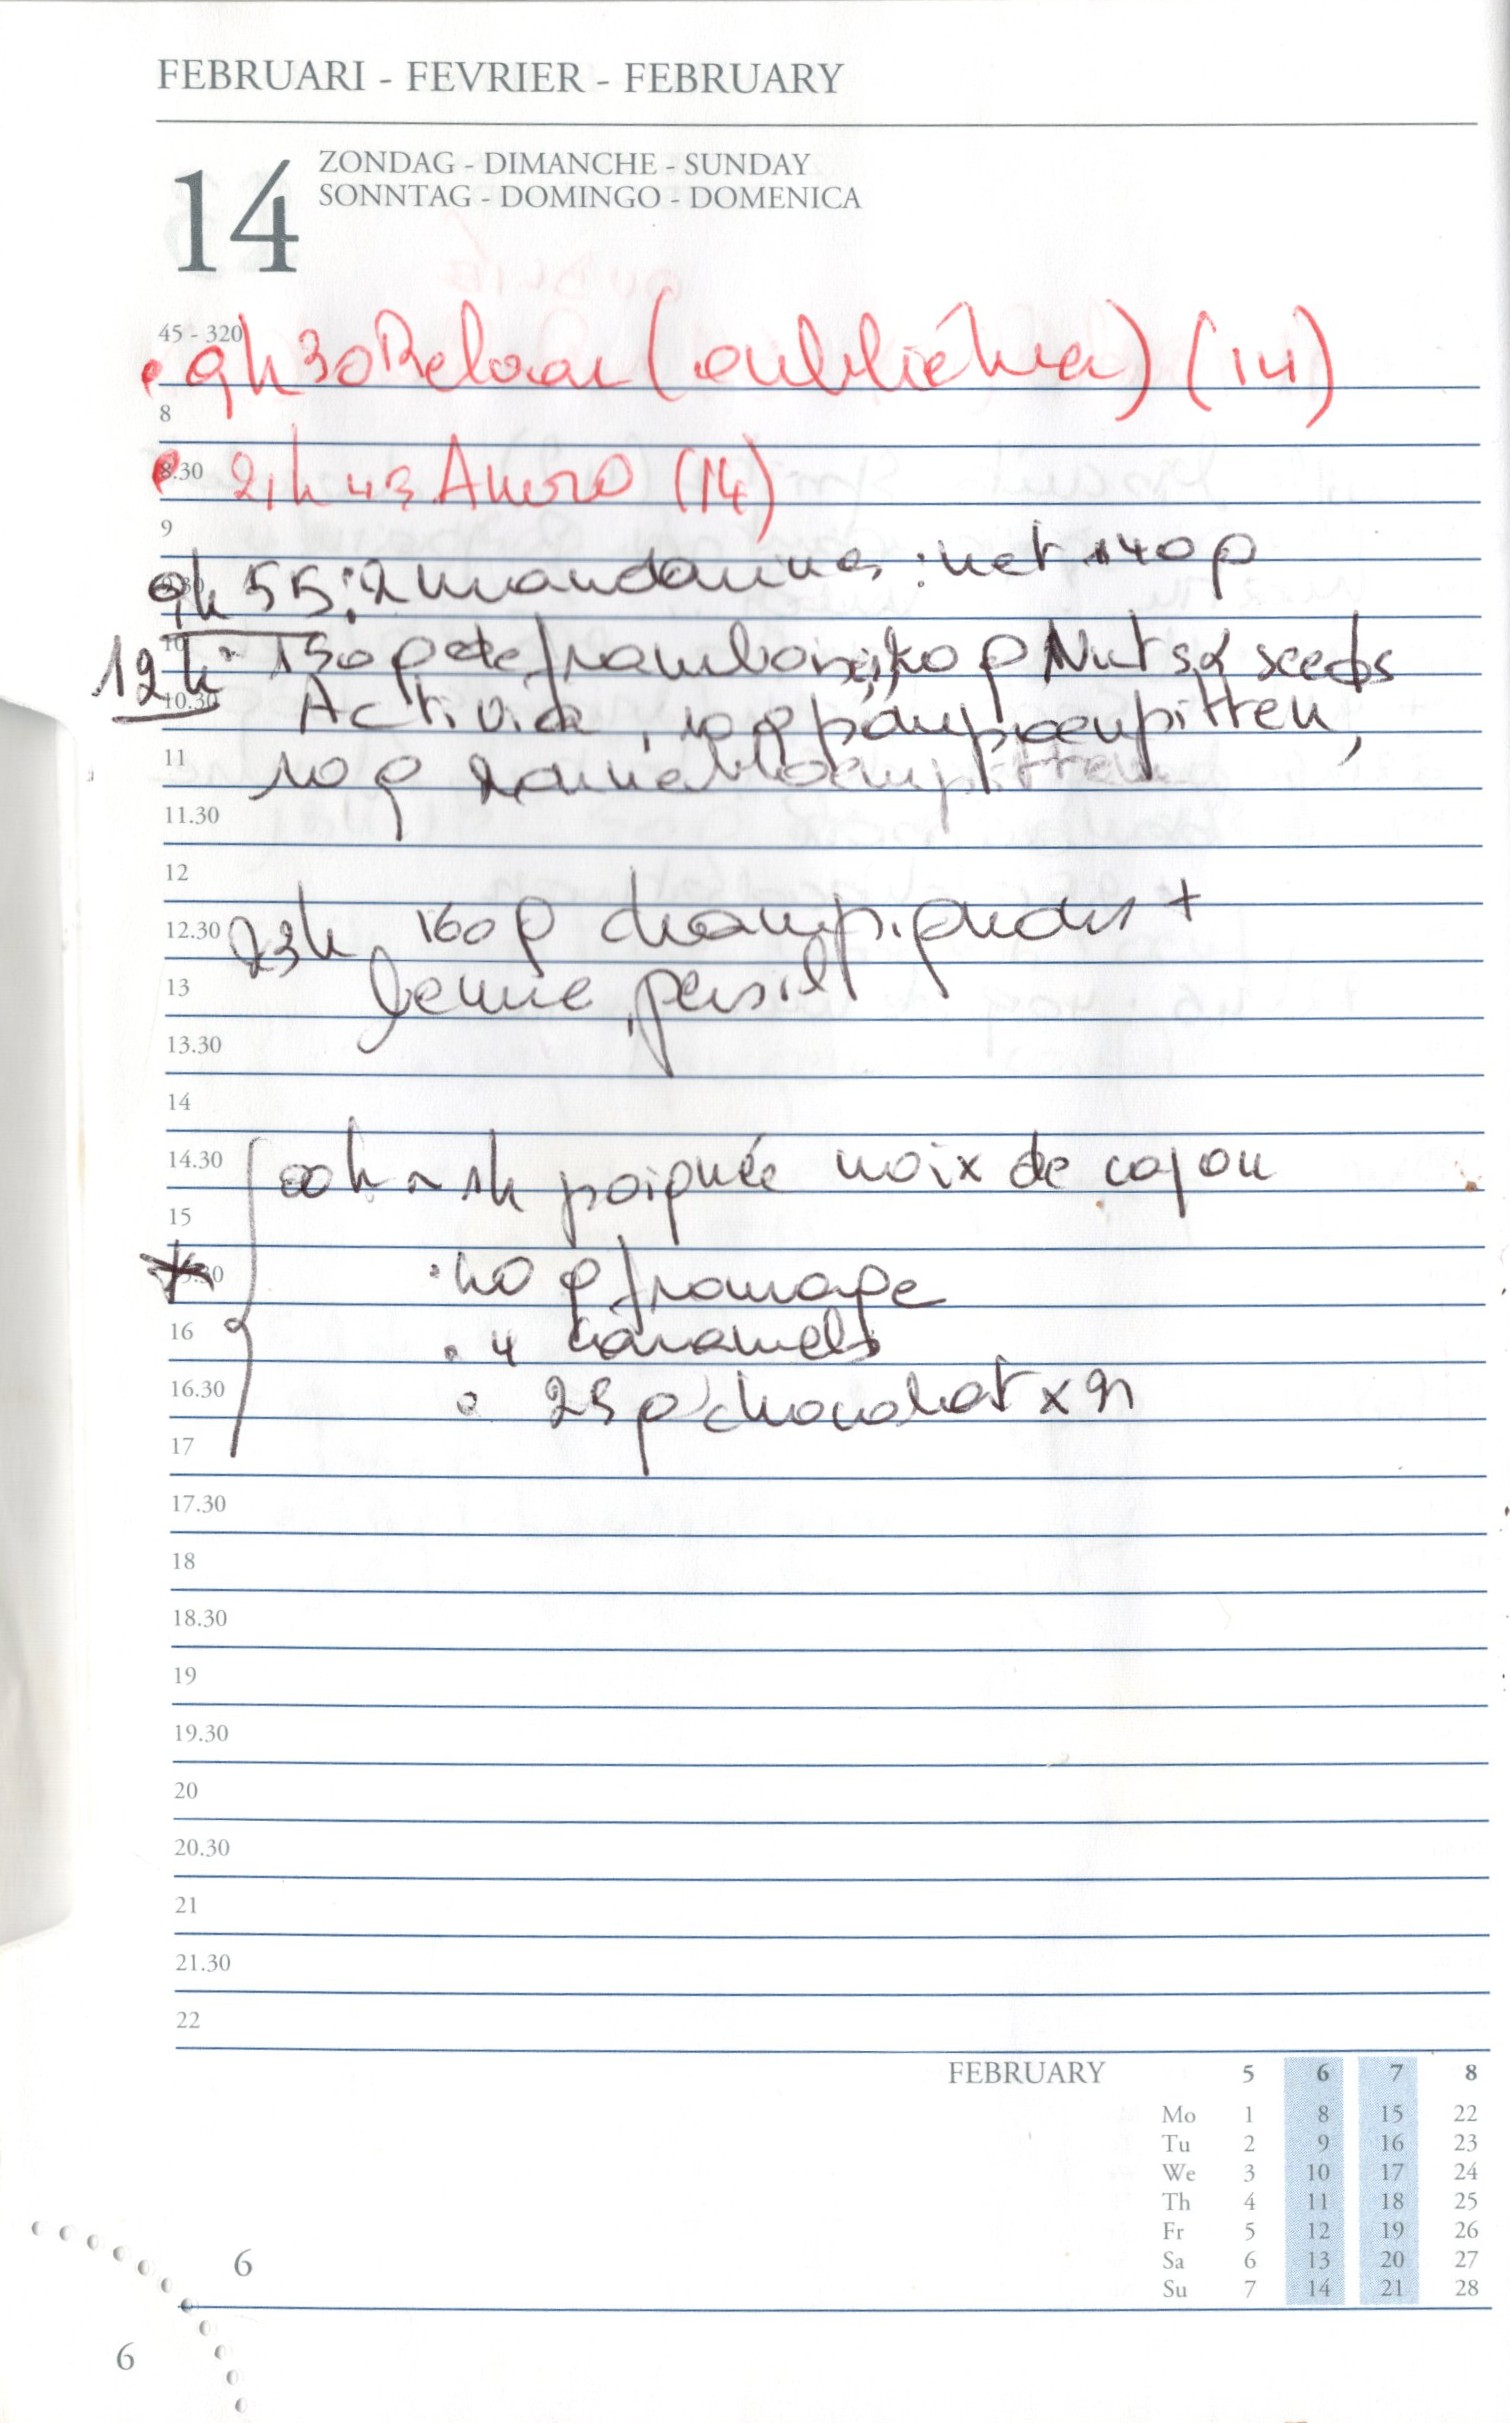 FEBRUARI - FEVRIER - FEBRUARY
14
ZONDAG - DIMANCHE - SUNDAY
SONNTAG - DOMINGO - DOMENICA
45 - 320
• 9h30 (oublié hier) (14)
8
8.30 • 21h43 (14)
9
9h55: 2 mandarines : net 140 g
10
12h 150 g de framboises, Nuts & seeds
10.30 Activia, 10 g pompoenpitten,
11
10 g zonnebloempitten
11.30
12
12.30 23h 160 g champignons +
13
persil
13.30
14
14.30 00h ~ 1h poignée noix de cajou
15
15.30 • 40 g fromage
16 • 4 caramels
16.30 • 25 g chocolat
17
17.30
18
18.30
19
19.30
20
20.30
21
21.30
22
FEBRUARY 5 6 7 8
Mo 1 8 15 22
Tu 2 9 16 23
We 3 10 17 24
Th 4 11 18 25
Fr 5 12 19 26
Sa 6 13 20 27
Su 7 14 21 28
6
6